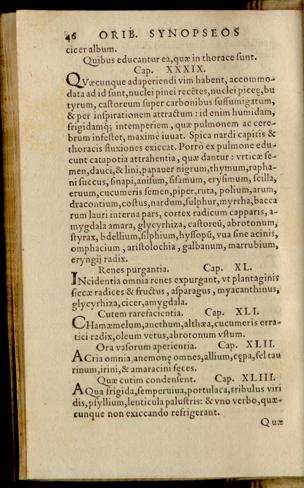 46 ORIB. SYNOPSEOS
cicer album.
Quibus educantur ea, quæ in thorace sunt.
Cap. XXXIX.
QVæcunque adaperiendi vim habent, accommo-
data ad id sunt, nuclei pinei recẽtes, nuclei piceę, bu
tyrum, castoreum super carbonibus suffumigatum,
& per inspirationem attractum: id enim humidam,
frigidamq; intemperiem, quæ pulmonem ac cere-
brum infestet, maximè iuuat. Spica nardi capitis &
thoracis fluxiones exiccat. Porrò ex pulmone edu-
cunt catapotia attrahentia, quæ dantur: vrticæ se-
men, dauci, & lini, papauer nigrum, thymum, rapha-
ni succus, sinapi, anisum, sisamum, erysimum, scilla,
eruum, cucumeris semen, piper, ruta, polium, arum,
dracontium, costus, nardum, sulphur, myrrha, bacca
rum lauri interna pars, cortex radicum capparis, a-
mygdala amara, glycyrhiza, castoreũ, abrotonum,
styrax, bdellium, silphium, hyssopũ, vua sine acinis,
omphacium, aristolochia, galbanum, marrubium,
eryngij radix.
Renes purgantia. Cap. XL.
INcidentia omnia renes expurgant, vt plantaginis
siccæ radices & fructus, asparagus, myacanthinus,
glycyrhiza, cicer, amygdala.
Cutem rarefacientia. Cap. XLI.
CHamæmelum, anethum, althæa, cucumeris erra-
tici radix, oleum vetus, abrotonum vstum.
Ora vasorum aperientia. Cap. XLII.
ACria omnia, anemonę omnes, allium, cępa, fel tau
rinum, irini, & amaracini fęces.
Quæ cutim condensent. Cap. XLIII.
AQua frigida, semperuiua, portulaca, tribulus viri
dis, psyllium, lenticula palustris: & vno verbo, quæ-
cunque non exiccando refrigerant.
Quæ